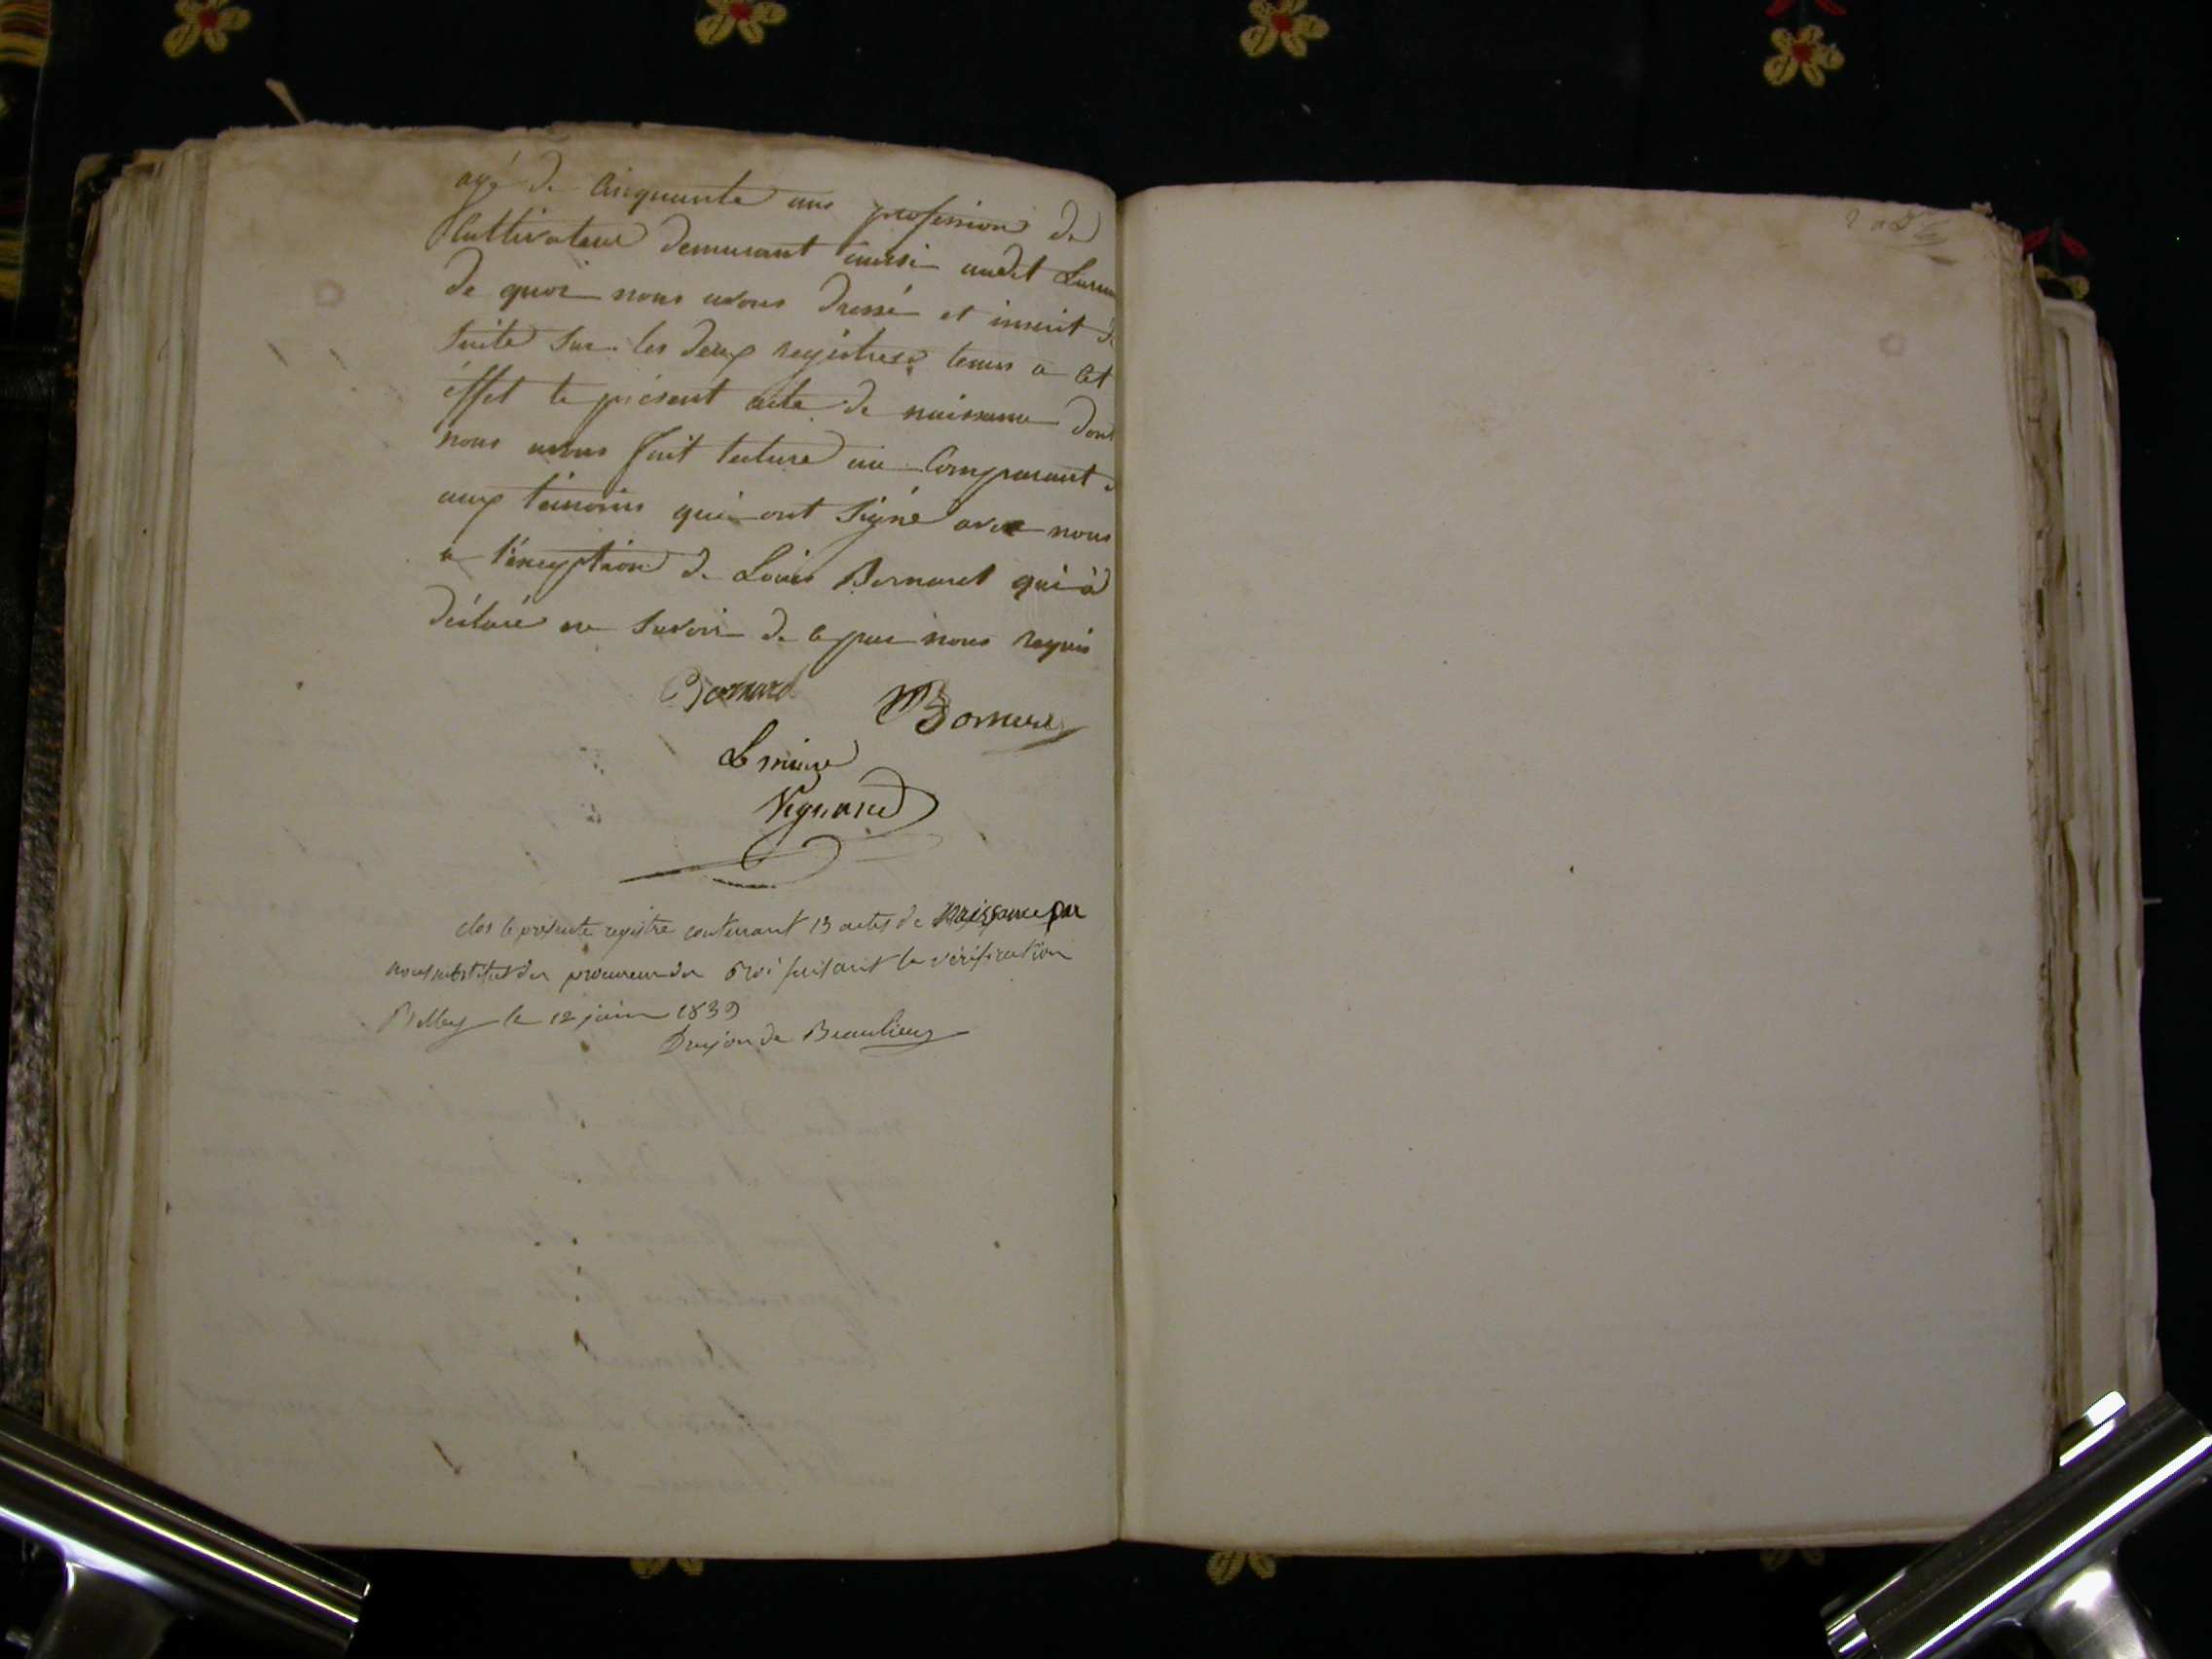 agé de cinquante ans profession de
Cultivateur demeurant aussi audit
de quoi nous avons dressé et inscrit de
suite sur les deux registres tenus a cet
éffet le présent acte de naissance dont
nous avons fait lecture au Comparant &
aux témoins qui ont signé avec nous
a l'éxeption de Louis Bornarel qui à
déclaré ne savoir de ce par nous requis
Bornarel
Bornarel
Le maire
Vignand
clos le présente registre contenant 13 actes de Naissance par
nous substitut du procureur du Roi faisant la vérification
Belley le 12 juin 1839
Dujon de Beaulieu